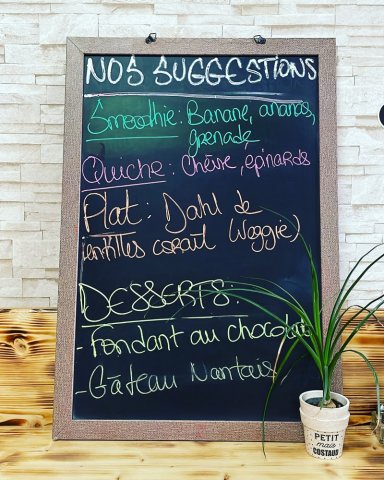 NOS SUGGESTIONS
Smoothie : Banane, ananas,
grenade
Quiche : Chèvre, épinards
Plat : Dahl de
lentilles corail (Veggie)
DESSERTS :
- Fondant au chocolat
- Gâteau Nantais
PETIT
mais
COSTAUD